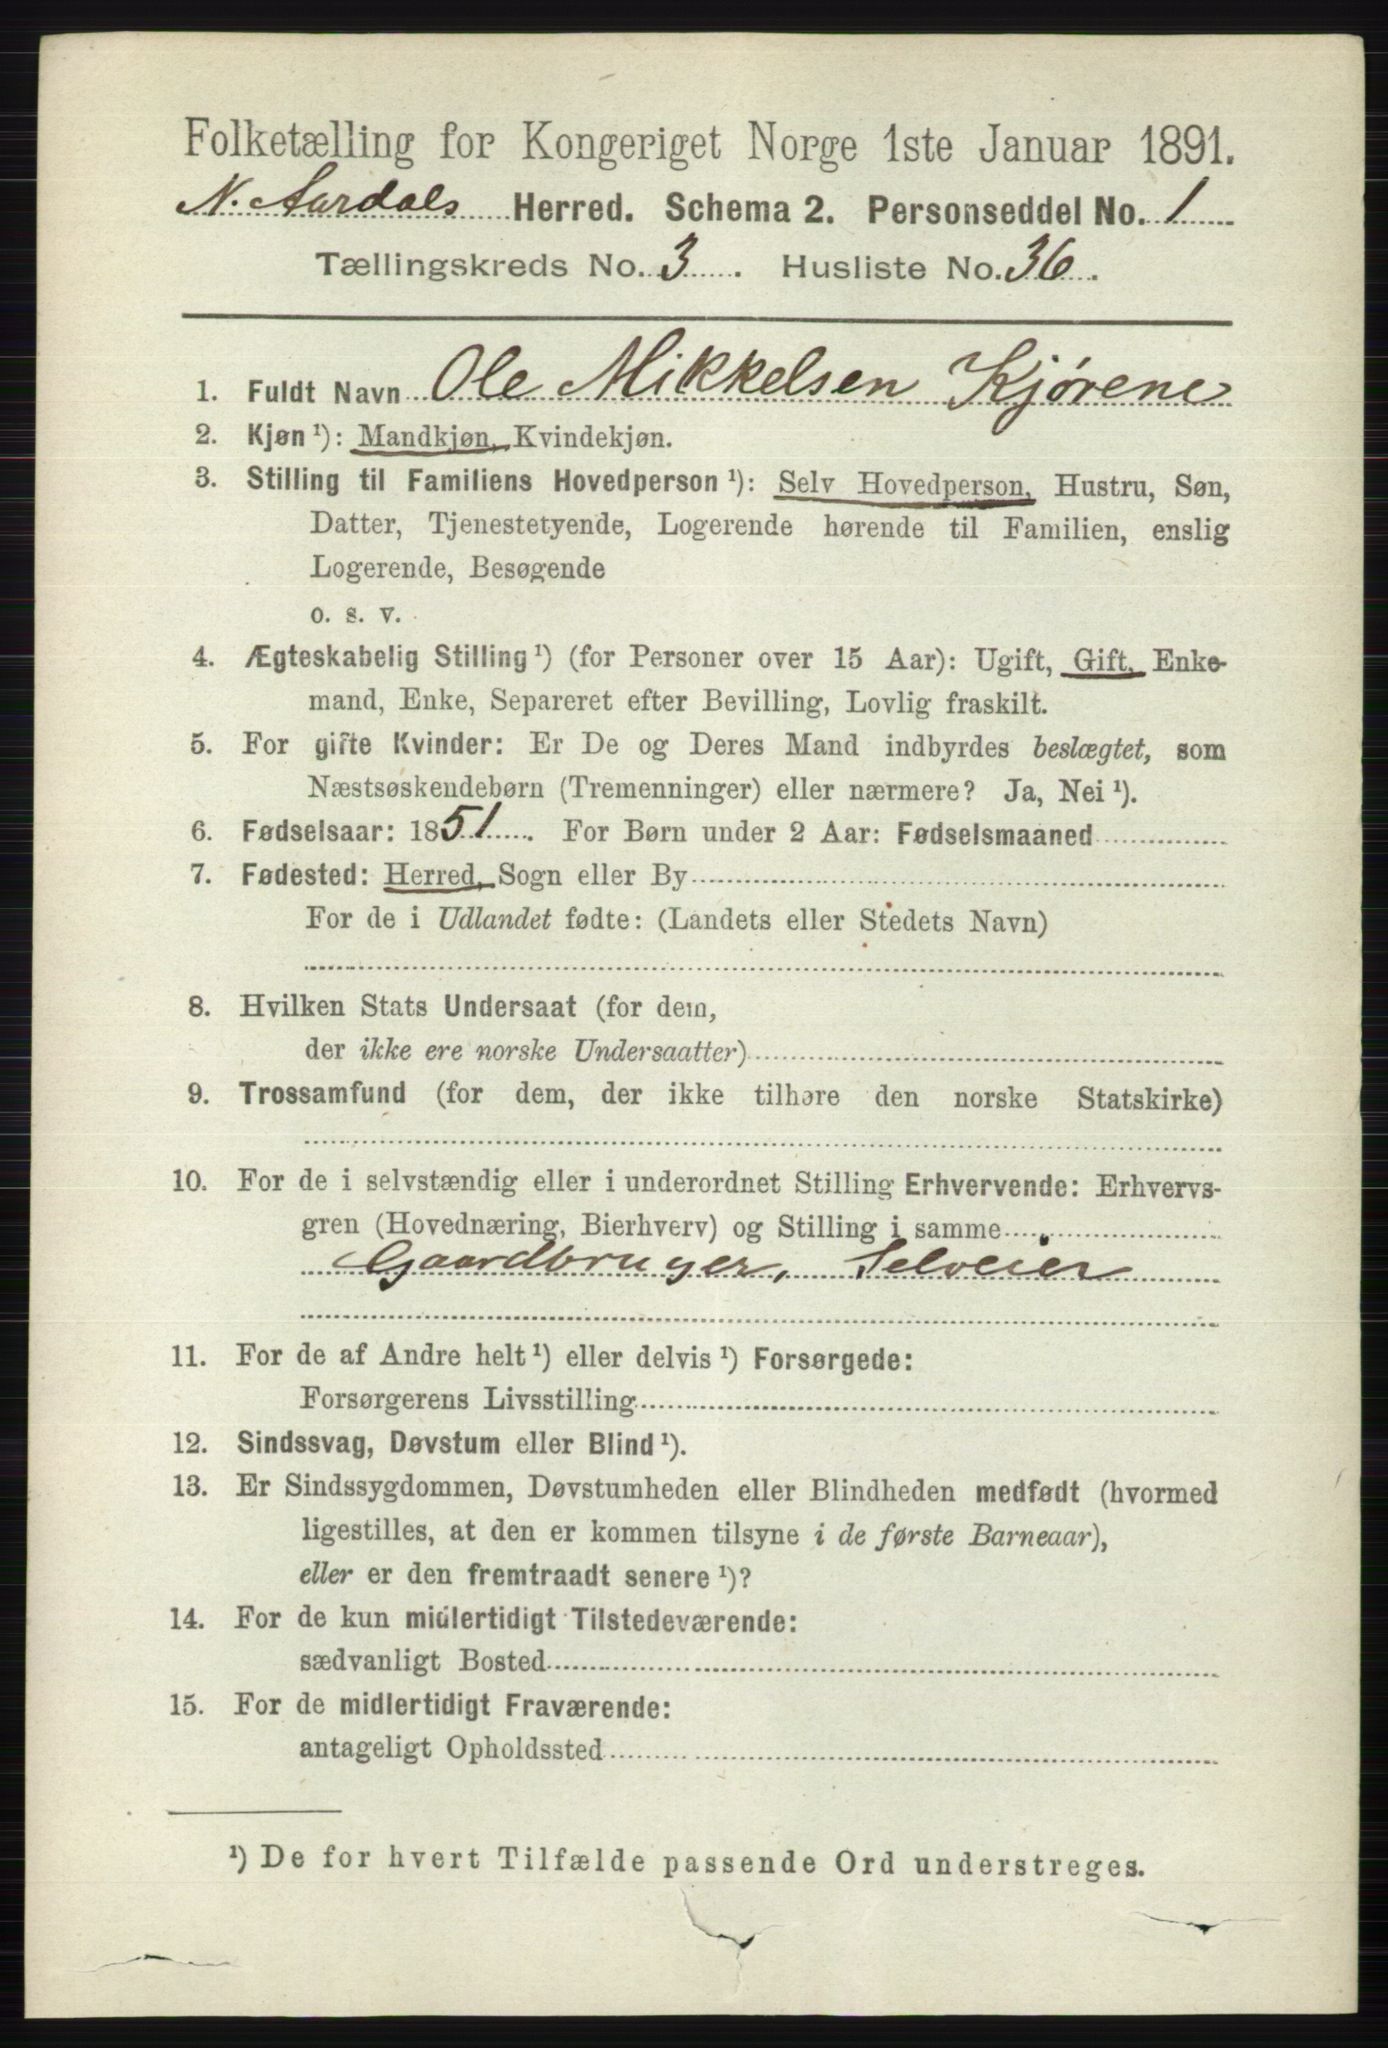 Folketælling for Kongeriget Norge 1ste Januar 1891.
N. Aurdals Herred. Schema 2. Personseddel No. 1
Tællingskreds No. 3. Husliste No. 36.
1. Fuldt Navn Ole Mikkelsen Kjørene
2. Kjøn ¹): Mandkjøn, Kvindekjøn.
3. Stilling til Familiens Hovedperson ¹): Selv Hovedperson, Hustru, Søn,
Datter, Tjenestetyende, Logerende hørende til Familien, enslig
Logerende, Besøgende
o. s. v.
4. Ægteskabelig Stilling ¹) (for Personer over 15 Aar): Ugift, Gift, Enke-
mand, Enke, Separeret efter Bevilling, Lovlig fraskilt.
5. For gifte Kvinder: Er De og Deres Mand indbyrdes beslægtet, som
Næstsøskendebørn (Tremenninger) eller nærmere? Ja, Nei ¹).
6. Fødselsaar: 1851. For Børn under 2 Aar: Fødselsmaaned
7. Fødested: Herred, Sogn eller By
For de i Udlandet fødte: (Landets eller Stedets Navn)
8. Hvilken Stats Undersaat (for dem,
der ikke ere norske Undersaatter)
9. Trossamfund (for dem, der ikke tilhøre den norske Statskirke)
10. For de i selvstændig eller i underordnet Stilling Erhvervende: Erhvervs-
gren (Hovednæring, Bierhverv) og Stilling i samme
Gaardbruger, Selveier
11. For de af Andre helt ¹) eller delvis ¹) Forsørgede:
Forsørgerens Livsstilling
12. Sindssvag, Døvstum eller Blind ¹).
13. Er Sindssygdommen, Døvstumheden eller Blindheden medfødt (hvormed
ligestilles, at den er kommen tilsyne i de første Barneaar),
eller er den fremtraadt senere ¹)?
14. For de kun midlertidigt Tilstedeværende:
sædvanligt Bosted
15. For de midlertidigt Fraværende:
antageligt Opholdssted
¹) De for hvert Tilfælde passende Ord understreges.